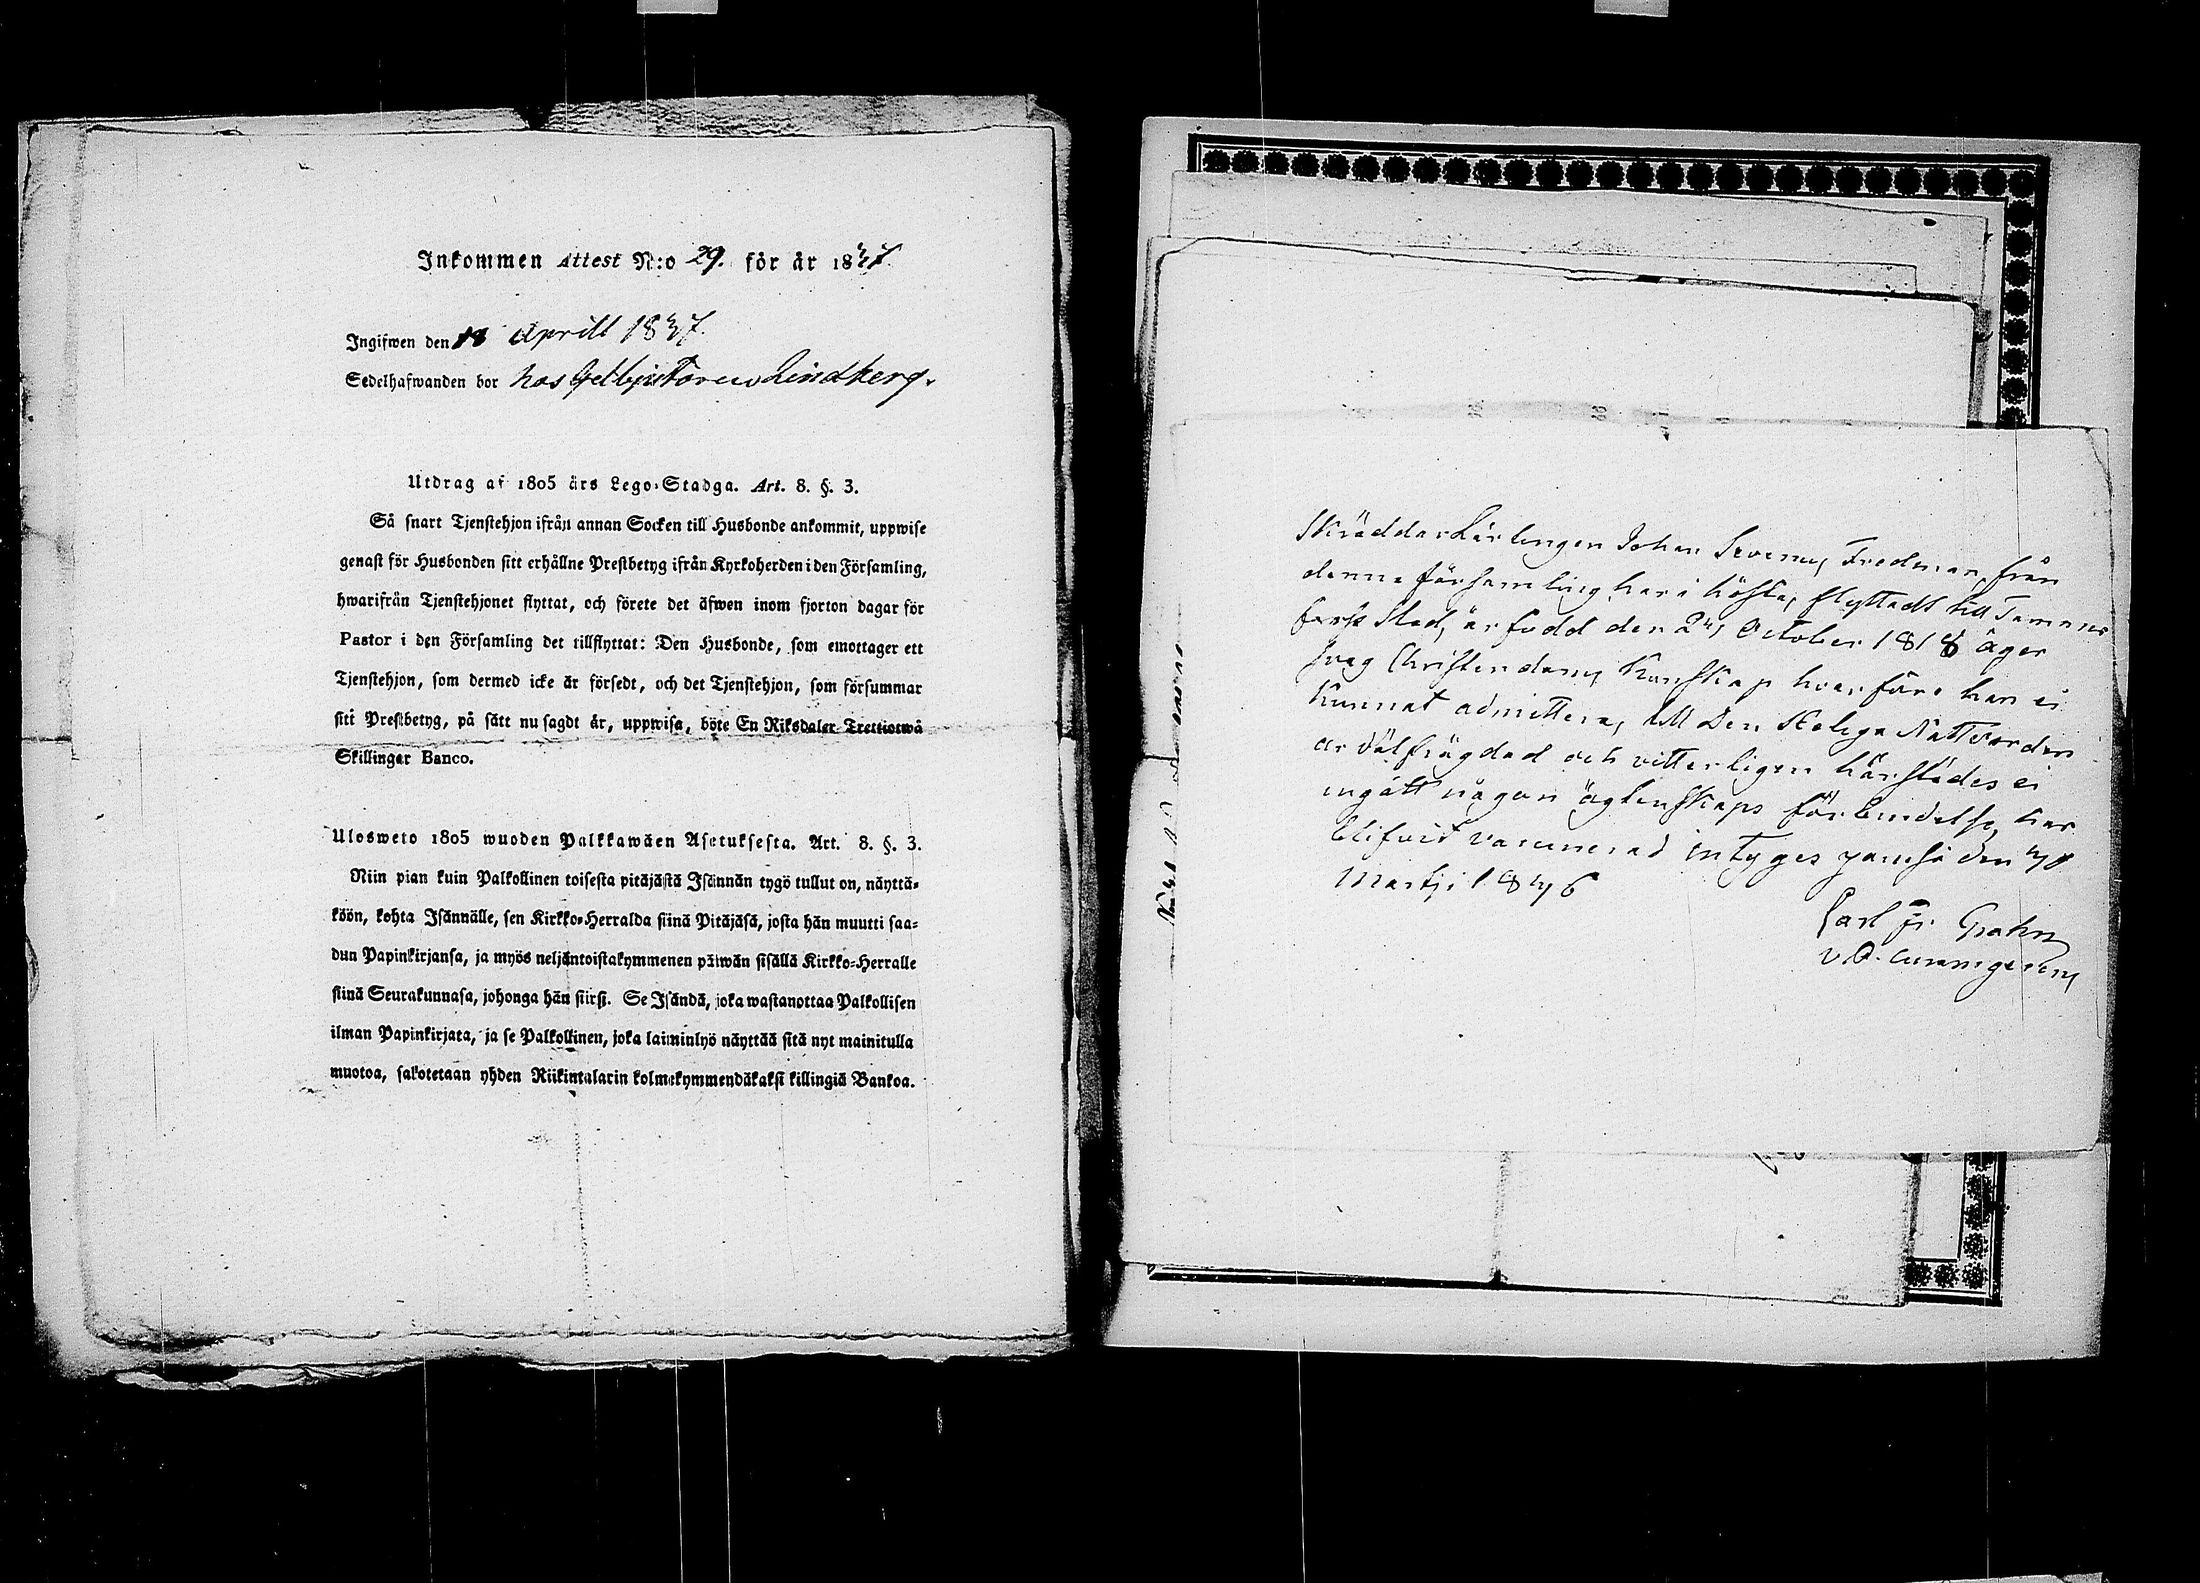 Inkommen Attest N:o 29. för år 1837.
Ingifwen den 18 Aprill 1837.
Sedelhafwanden bor hos Lindberg.
Utdrag af 1805 års Lego-Stadga. Art. 8. §. 3.
Så snart Tjenstehjon ifrån annan Socken till Husbonde ankommit, uppwise
genast för Husbonden sitt erhållne Prestbetyg ifrån Kyrkoherden i den Församling,
hwarifrån Tjenstehjonet flyttat, och förete det äfwen inom fjorton dagar för
Pastor i den Församling det tillflyttat: Den Husbonde, som emottager ett
Tjenstehjon, som dermed icke är försedt, och det Tjenstehjon, som försummar
sitt Prestbetyg, på sätt nu sagdt är, uppwisa, böte En Riksdaler Trettiotwå
Skillingar Banco.
Ulosweto 1805 wuoden Palkkawäen Asetuksesta. Art. 8. §. 3.
Niin pian kuin Palkollinen toisesta pitäjästä Isännän tygö tullut on, näyttä-
köön, kohta Isännälle, sen Kirkko-Herralda siinä Pitäjäsä, josta hän muutti saa-
dun Papinkirjansa, ja myös neljäntoistakymmenen päiwän sisällä Kirkko-Herralle
siinä Seurakunnasa, johonga hän siirsi. Se Isändä, joka wastanottaa Palkollisen
ilman Papinkirjata, ja se Palkollinen, joka laiminlyö näyttää sitä nyt mainitulla
muotoa, sakotetaan yhden Riikintalarin kolmekymmendäkaksi killingiä Bankoa.
Skräddar Lärlingen Johan Fredman från
denna församling har i höstas flyttadt till Tammer
fors Stad, är född den 24 October 1818 äger
svag Christendoms Kunskap hvarföre han ei
kunnat admitteras till Den Heliga Nattvarden
är välfrägdad och vitterligen härstädes ei
ingått någon äktenskaps förbindelse, har
blifvit vaccinerad intygas den
Martji 1836
Carl Fr. Grahn